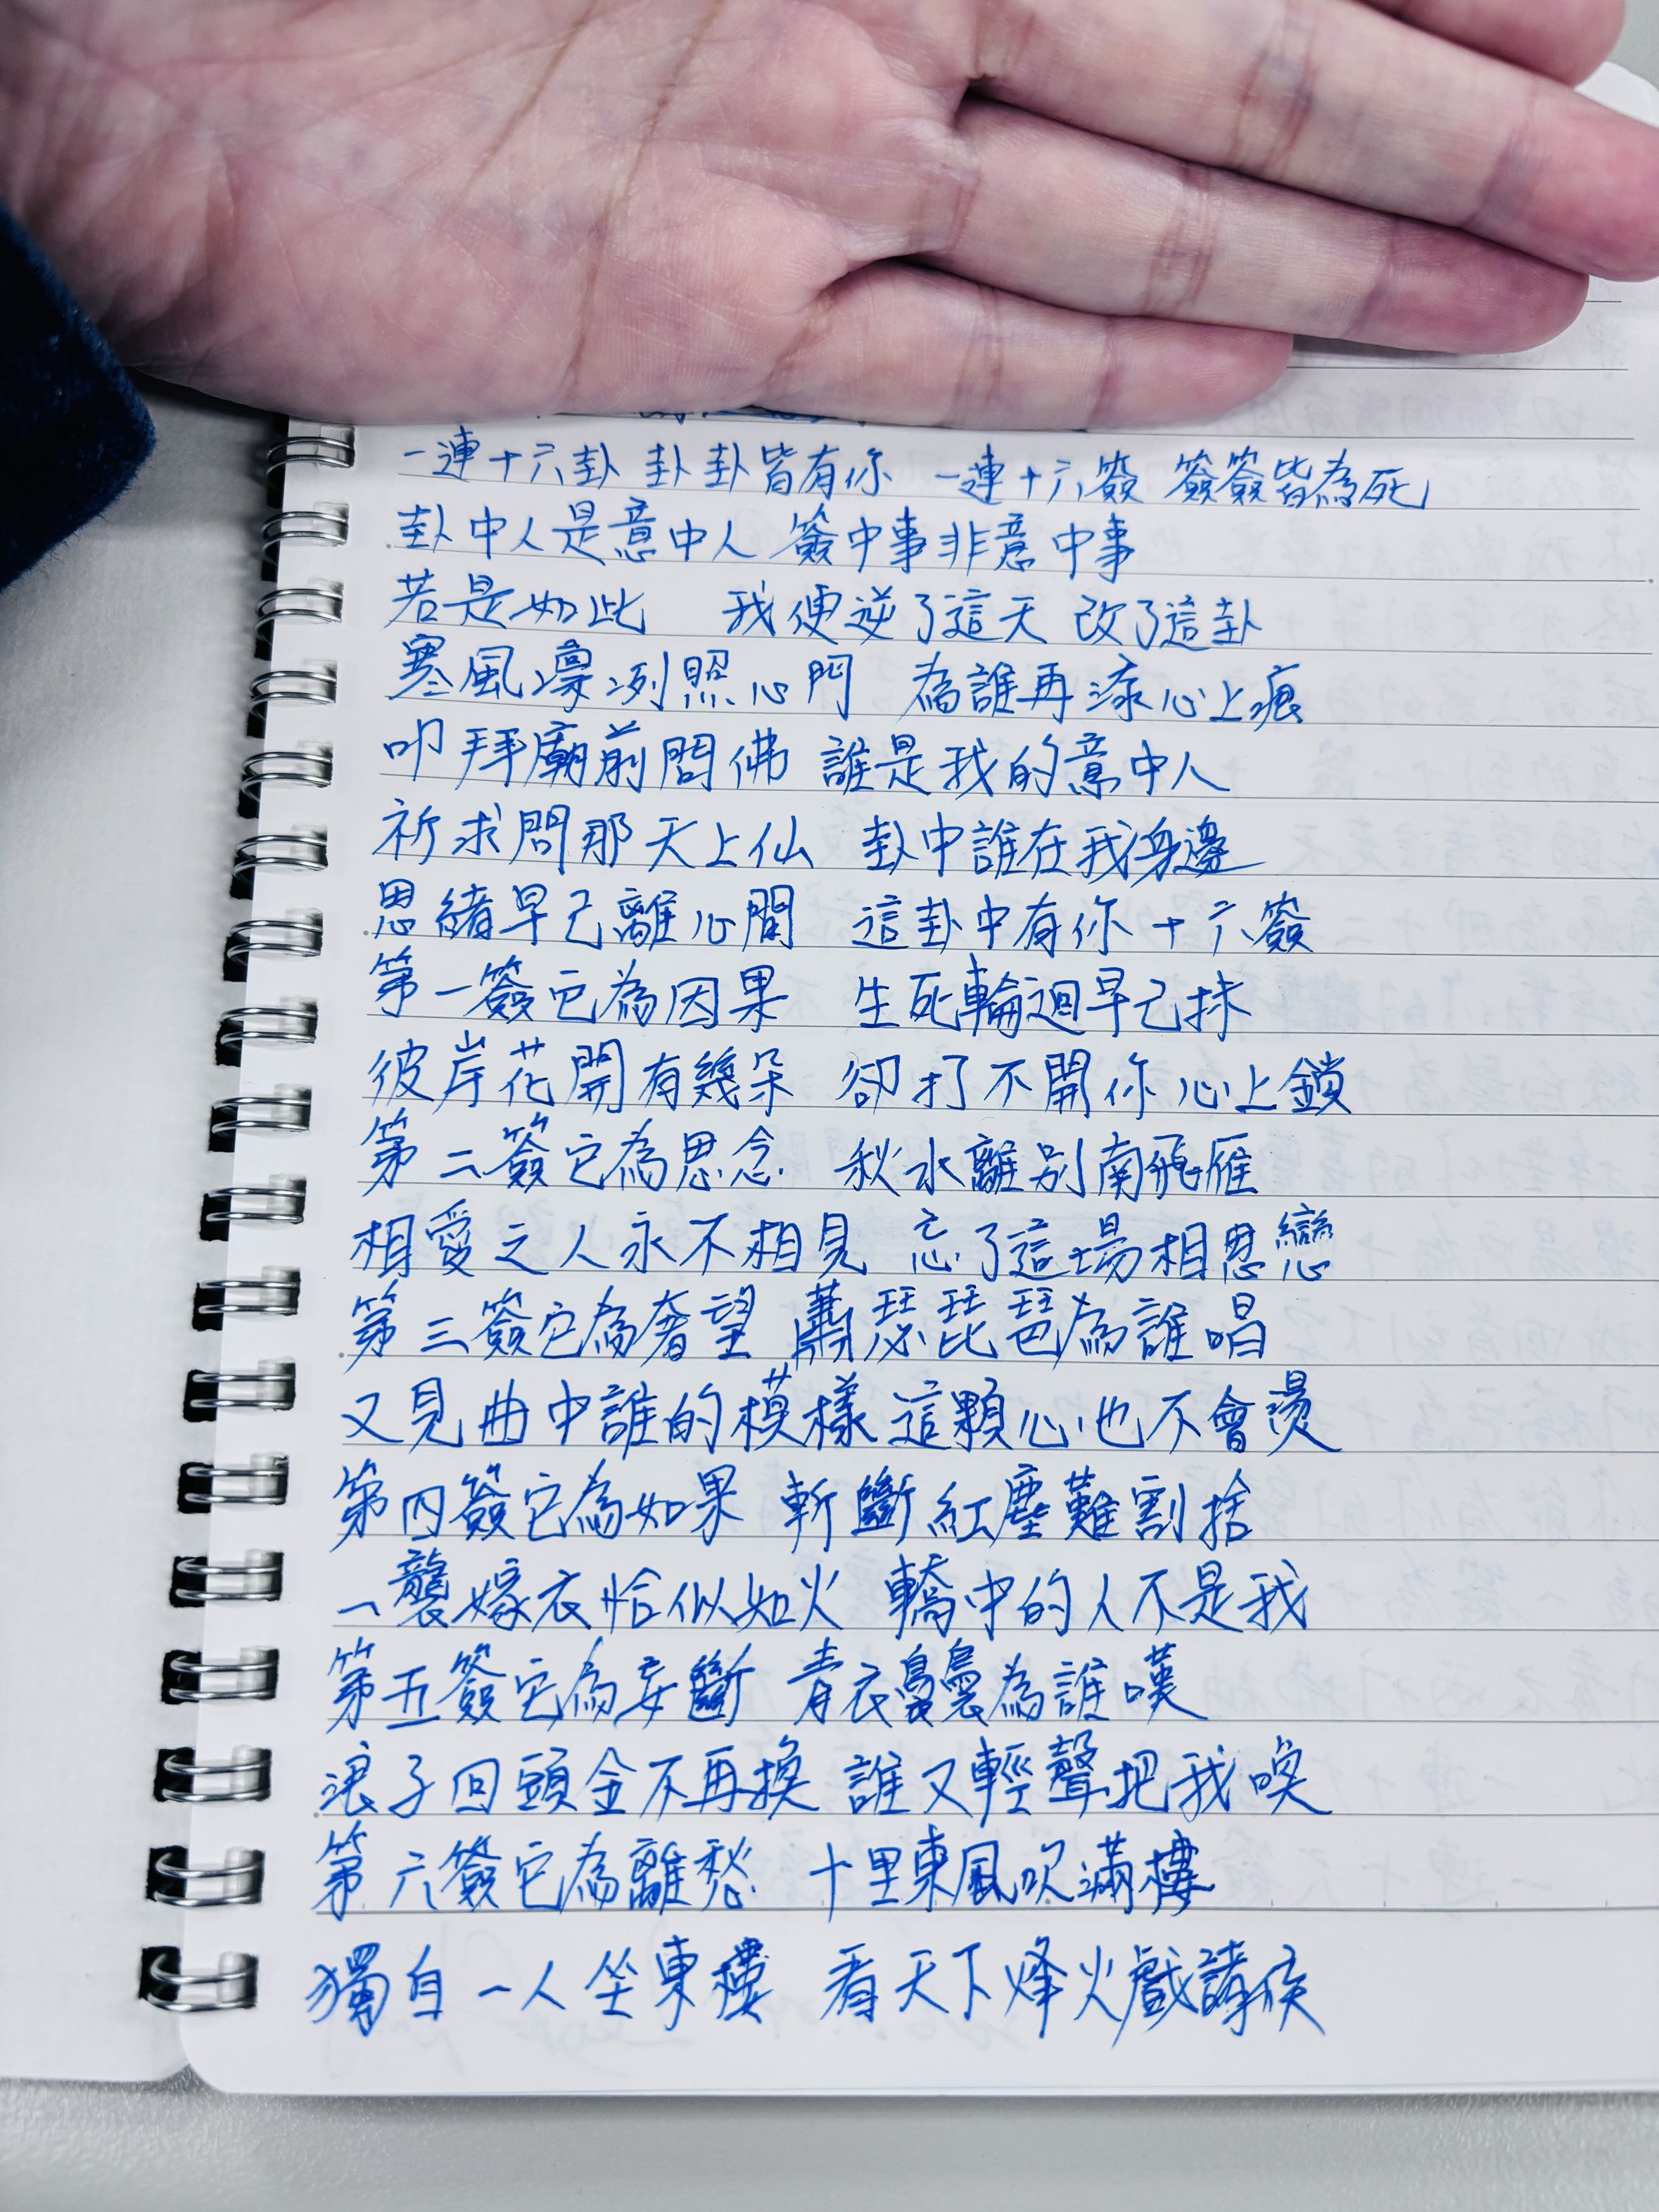 一連十六卦 卦卦皆有你 一連十六簽 簽簽皆為死
卦中人是意中人 簽中事非意中事
若是如此 我便逆了這天 改了這卦
寒風凜冽照心門 為誰再添心上痕
叩拜廟前問佛 誰是我的意中人
祈求問那天上仙 卦中誰在我身邊
思緒早已離心間 這卦中有你十六簽
第一簽它為因果 生死輪迴早已抹
彼岸花開有幾朵 卻打不開你心上鎖
第二簽它為思念 秋水離別南飛雁
相愛之人永不相見 忘了這場相思戀
第三簽它為奢望 蕭瑟琵琶為誰唱
又見曲中誰的模樣 這顆心也不會燙
第四簽它為如果 斬斷紅塵難割捨
一襲嫁衣恰似如火 轎中的人不是我
第五簽它為妄斷 青衣裊裊為誰嘆
浪子回頭金不再換 誰又輕聲把我喚
第六簽它為離愁 十里東風吹滿樓
獨自一人坐東樓 看天下烽火戲諸侯